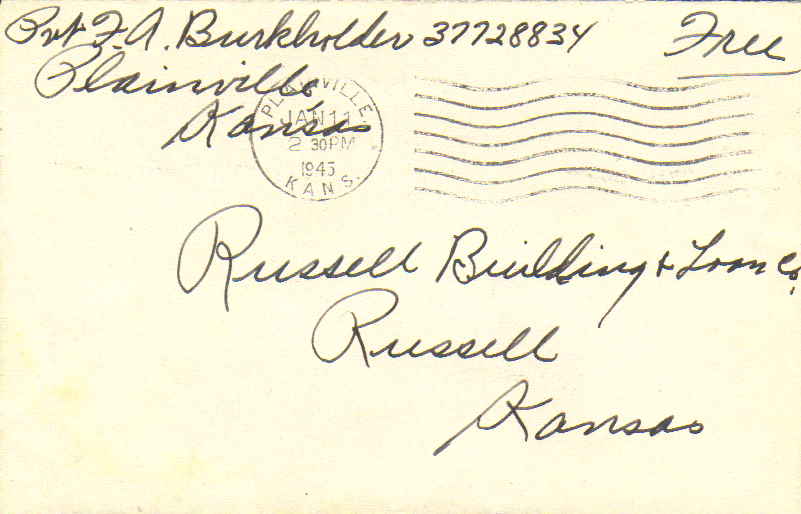 Pvt F. A. Burkholder 37728834
Free
Plainville
Kansas
PLAINVILLE.
JAN 11
2 30PM
1945
KANS.
Russell Building & Loan Co.
Russell
Kansas